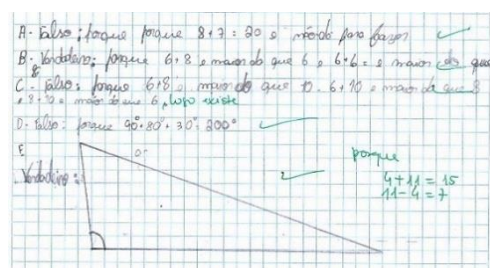 A - Falso: porque porque 8+7 = 20 e não da para fazer
B - Verdadeiro: porque 6+8 e maior do que 6 e 6+6 = e maior do que
8
C - Falso: porque 6+8 e maior do que 10. 6+10 e maior da que 8
e 8+10 e maior do que 6, logo existe
D - Falso: porque 90°+80°+30° = 200°
E
Verdadeiro:
porque
4+11 = 15
11-4 = 7